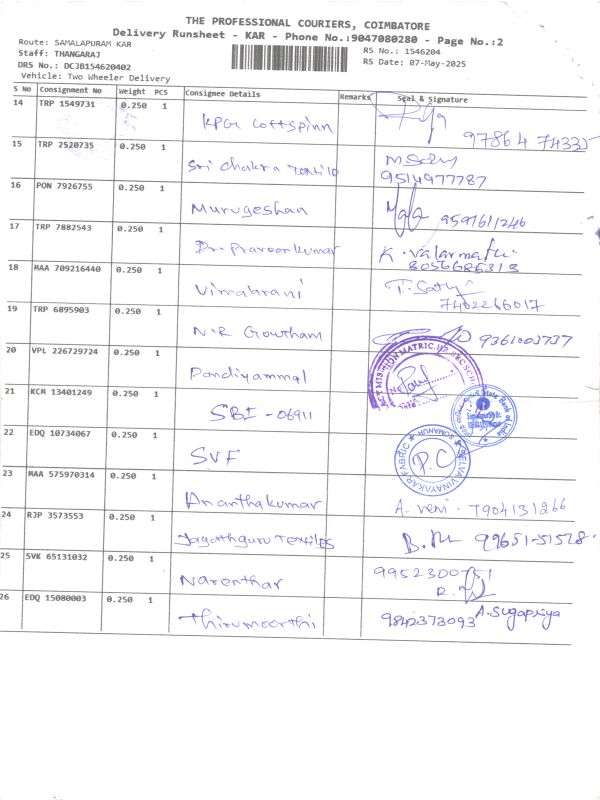 THE PROFESSIONAL COURIERS, COIMBATORE
Delivery Runsheet - KAR - Phone No.:9047080280 - Page No.:2
Route: SAMALAPURAM KAR
Staff: THANGARAJ
DRS No.: DCJB154620402
Vehicle: Two Wheeler Delivery
RS No.: 1546204
RS Date: 07-May-2025
S No Consignment No Weight PCS Consignee Details Remarks Seal & Signature
14 TRP 1549731 0.250 1 KPG Cottspinn
97864 74335
15 TRP 2520735 0.250 1 Sri Chakra Textile
9514977787
16 PON 7926755 0.250 1 Murugeshan 9597611246
17 TRP 7882543 0.250 1 Dr. Praveenkumar K. Valarmathi
8056685318
18 MAA 709216440 0.250 1 Vimalarani T. Sathy
7402266017
19 TRP 6895903 0.250 1 N.R Gowtham 9361003737
20 VPL 226729724 0.250 1 Pandiyammal
MISSION MATRIC. HR. SEC. SCH
21 KCM 13401249 0.250 1 SBI - 06911
State Bank of India
22 EDQ 10734067 0.250 1 SVF P.C
SELVA VINAYAKAR FABRIC
SOMANUR
23 MAA 575970314 0.250 1 Ananthakumar A. veni - 7904131266
24 RJP 3573553 0.250 1 Jagathguru Textiles 99651-51528
25 SVK 65131032 0.250 1 Narenthar 9952300751
26 EDQ 15080003 0.250 1 Thirumoorthi 9842373093 A. Sugapriya